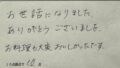 お世話になりました。
ありがとうございました。
お料理も大変おいしかったです。